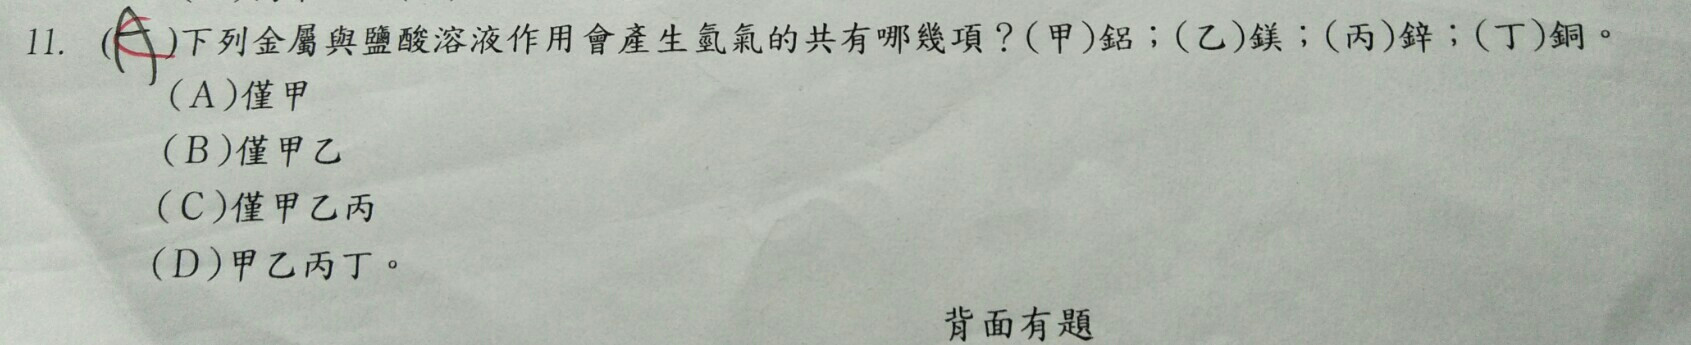 11. (A)下列金屬與鹽酸溶液作用會產生氫氣的共有哪幾項？(甲)鋁；(乙)鎂；(丙)鋅；(丁)銅。
(A)僅甲
(B)僅甲乙
(C)僅甲乙丙
(D)甲乙丙丁。
背面有題